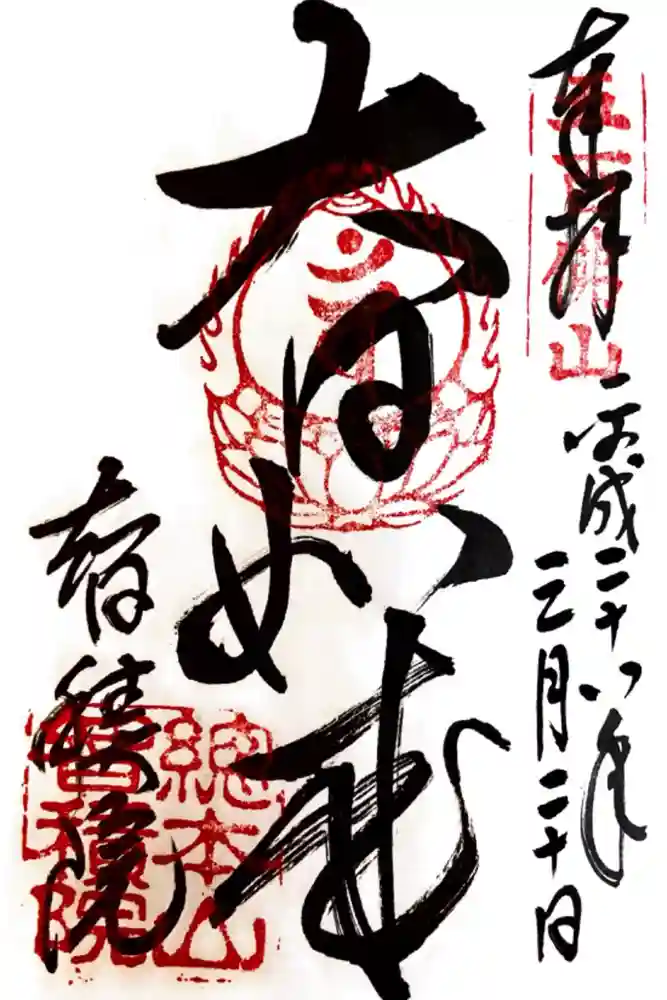 奉拝
五百佛山
平成二十八年
三月二十日
大日如来
智積院
總本山
智積院